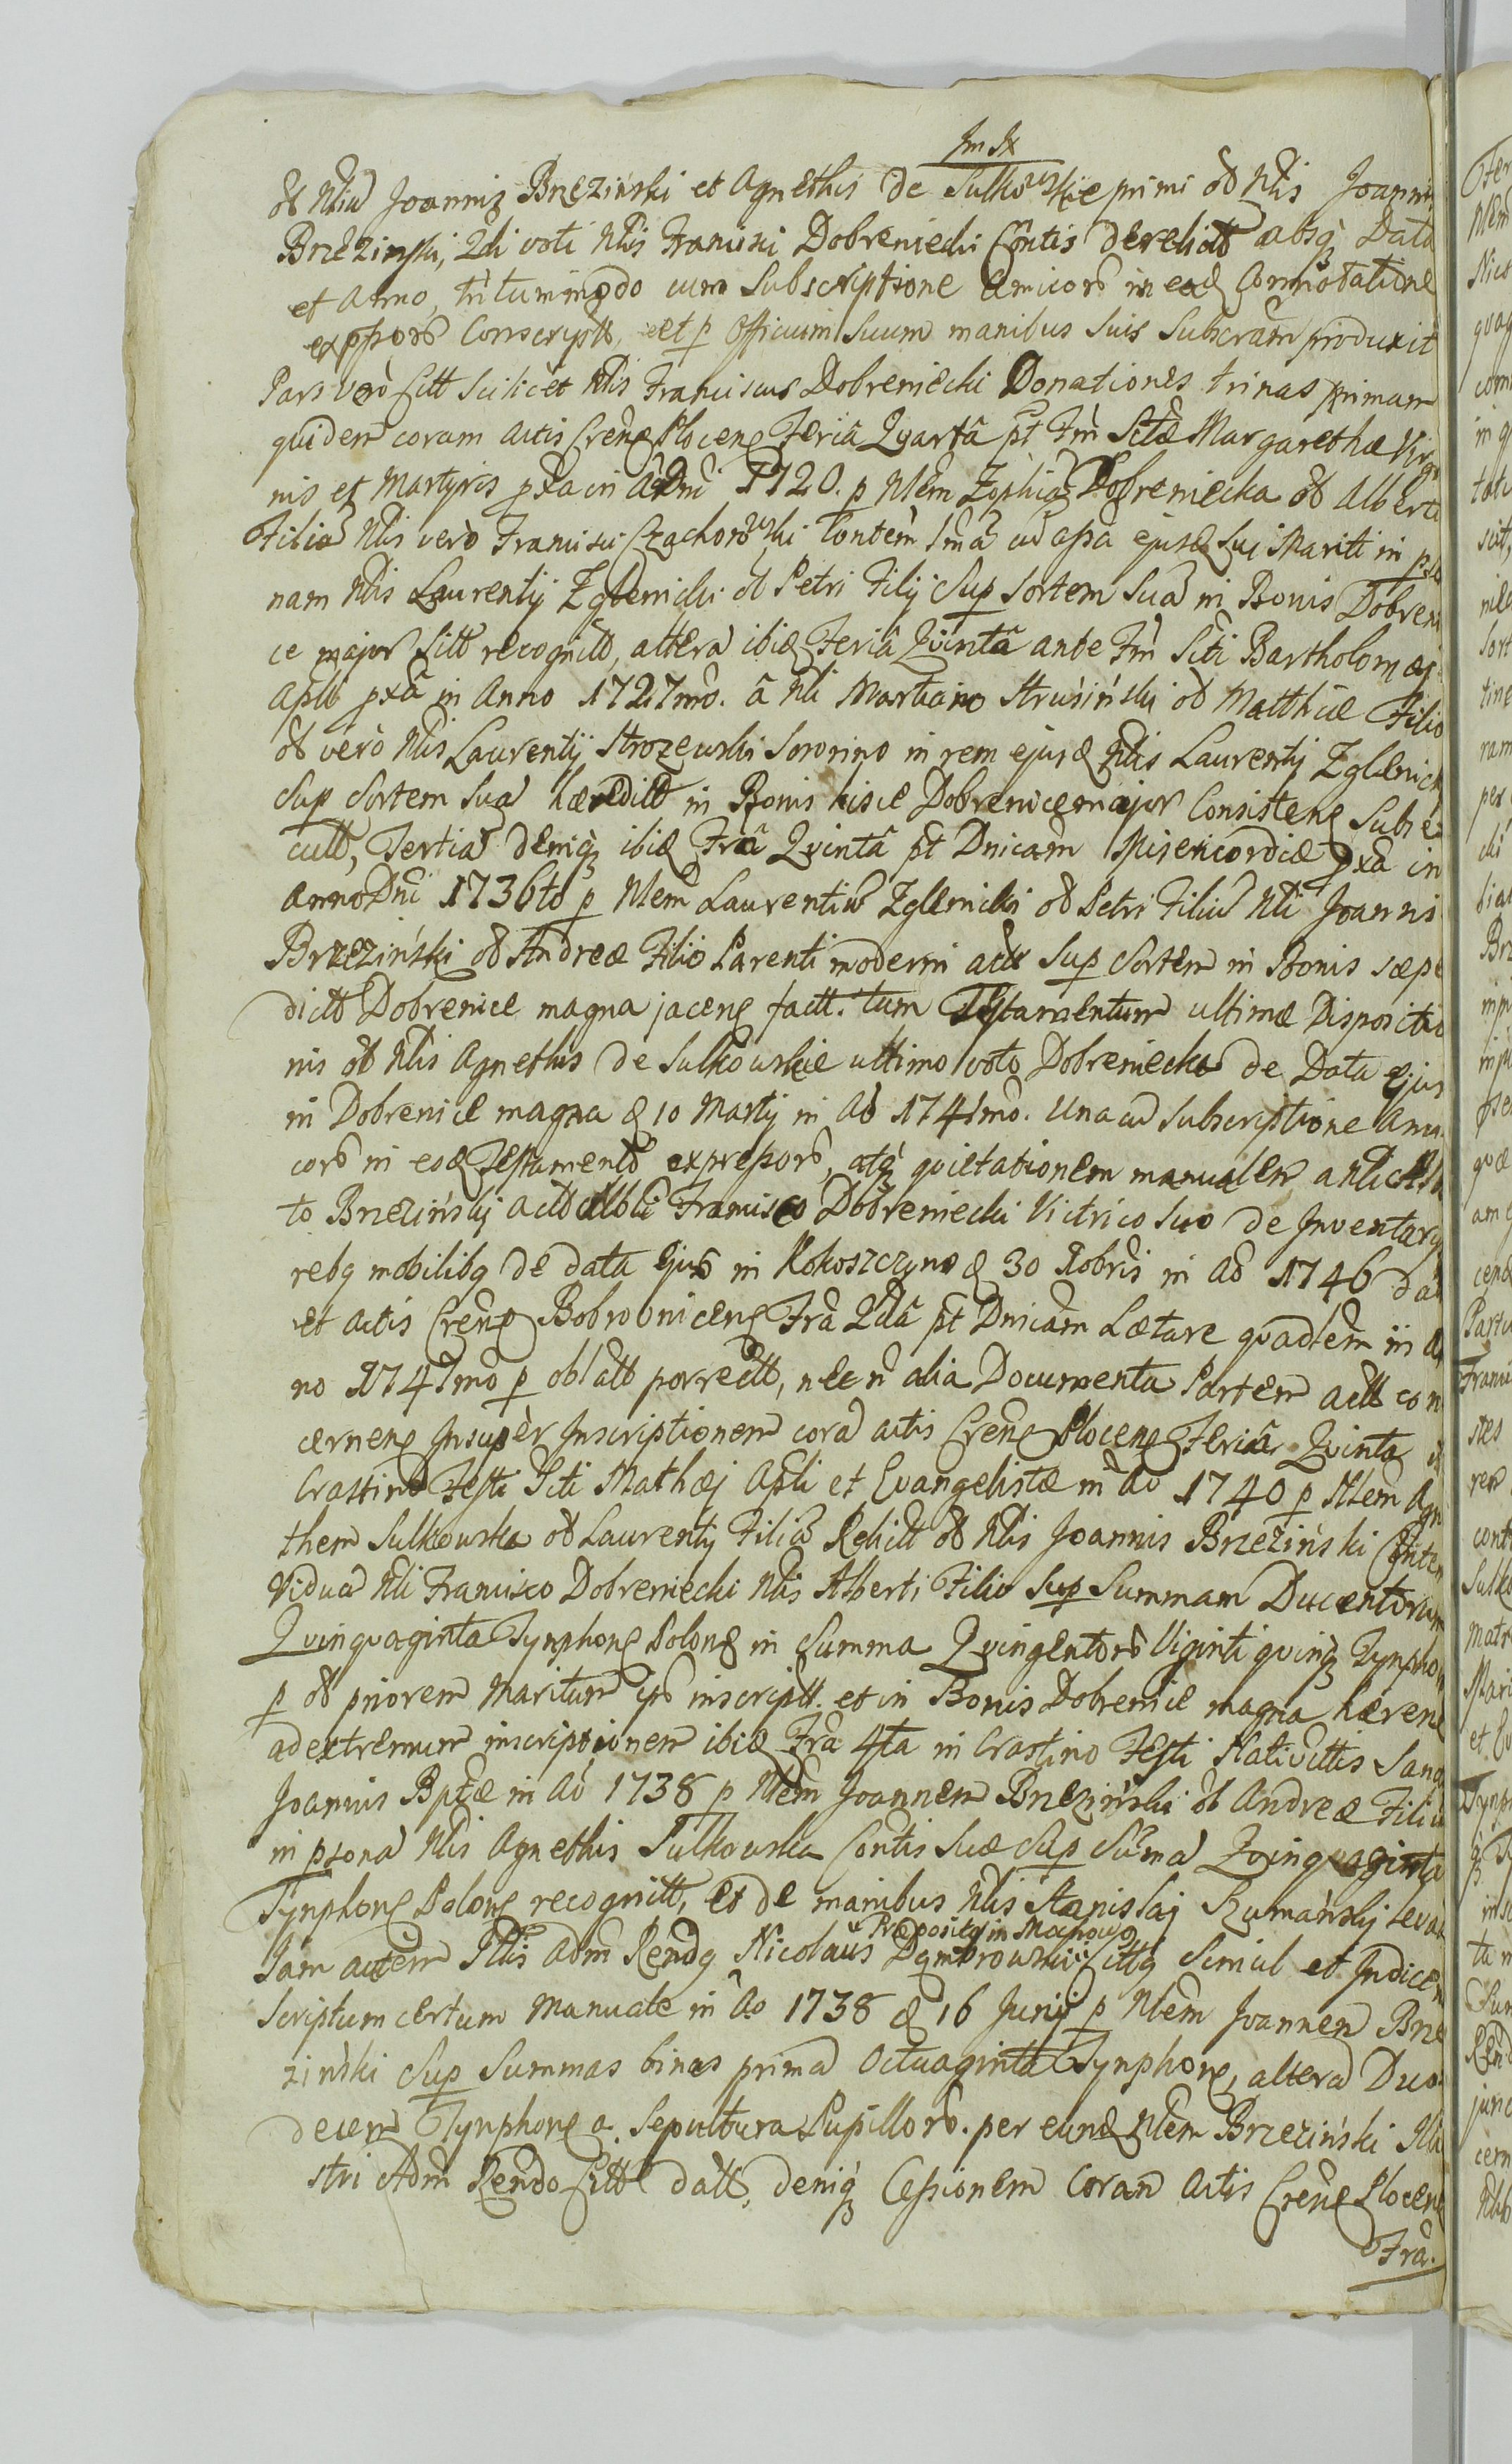 Im Ix
ol Nliũ Joannis Brzezinski et Agnethis de Sulkowskie primi ol Nlis Joannis
Brzezinski, 2di voti Nlis Francisci Dobreniecki Contis derelictõ absq Data
et Anno, tñtummodo cum Subscriptione Amicorõ in eadẽ Connotatione
exp̃ssorõ Conscriptt, et p Officium Suum manibus Suis Subscram produxit
Pars verò Citt Scilicet Nlis Franciscus Dobreniecki Donationes trinas primam
quidem coram Actis Crens Plocens Feriâ Quartâ pt Fm Sctæ Margarethæ Virgi
nis et Martyris pxa in Aõ Dni 1720. p Nlem Zophiã Dobreniecka ol Alberti
Filiã Nlis verò Francisci Czachorowski Contem Smã cũ assa ejusd Sui Mariti in pso
nam Nlis Laurentij Zglenicki ol Petri Filij Sup Sortem Suã in Bonis Dobreni
ce major Sitt recognitt, alterã ibid Feriâ Quintâ ante Fm Scti Bartholomæi
Apli pxâ in Anno 1727mo. â Nli Martiano Strusiński ol Matthiæ Filio
ol verò Nlis Laurentij Strozewski Sororino in rem ejusd Nlis Laurentij Zglenick
Sup Sortem Suã hæreditt in Bonis hisce Dobrenice major Consistens Subse
cutt, Tertiã deniq ibid Frâ Quintâ pt Dnicam Misericordiæ pxâ in
Anno Dni 1736to p Nlem Laurentiũ Zglenicki ol Petri Filiũ Nli Joanni
Brzeziński ol Andreæ Filio Parenti moderni actt Sup Sortem in Bonis sæpe
dictt Dobrenice magna jacens factt. tum Testamentum ultimæ Dispositio
nis ol Nlis Agnethis de Sulkowskie ultimo voto Dobreniecka de Data ejus
in Dobrenice magna d 10 Martij in Aõ 1741mo. Una cũ Subscriptione Ami
corõ in eod Testamentõ expressorõ, atq quietationem manualem a Nli Alb
to Brzezińskij actt Nbli Francisco Dobreniecki Vitrico Suo de Inventary
rebq mobilibq de data ejus in Kokoszczyno d 30 Xobris in Aõ 1746 dat
et Actis Crens Bobrovnicens Frâ 2dâ pt Dnicam Lætare quadlem in An
no 1747mo p oblatt porrectt, nec ñ alia Documenta Partem actt con
cernens Insupèr Inscriptionem corã actis Crens Plocens Feriâ Quinta in
Crastino Festi Scti Mathæj Apli et Evangelistæ in Aõ 1740 p Nlem Agne
them Sulkowska ol Laurentij Filiã Relictt ol Nlis Joannis Brzeziński Contem
Viduã Nli Francisco Dobreniecki Nlis Alberti Filio Sup Summam Ducentorum
Quinquaginta Tynphons Polons in Summa Quingentorõ Viginti quinq Tynphon
p ol priorem Maritum ipso inscriptt. et in Bonis Dobrenice magna hærens
ad extremum inscriptionem ibid Frâ 4ta in Crastino Festi Nativittis Sanc
Joannis Bptæ in Aõ 1738 p Nlem Joannem Brzeziński ol Andreæ Filiũ
in psona Nlis Agnethis Sulkowska Contis Suæ Sup Smã Quinquaginta
Tynphons Polons recognitt, et de manibus Nlis Stanislaj Szumańskij levat
Præpositus in Machowo
Jam autem Illris Adm Rendq Nicolaus Dąmbrowski Cittq Simul et Judicen
Scriptum certum Manuale in Aõ 1738 d 16 Junij p Nlem Joannem Brze
ziński Sup Summas binas primã Octuaginta Tynphons, alterã Duo
decem Tynphons a Sepultura Pupillorõ. per eund Nlem Brzeziński Illu
stri Adm Rendo Citto datt, deniq Cessionem Coram Actis Crens Plocens
Frâ.